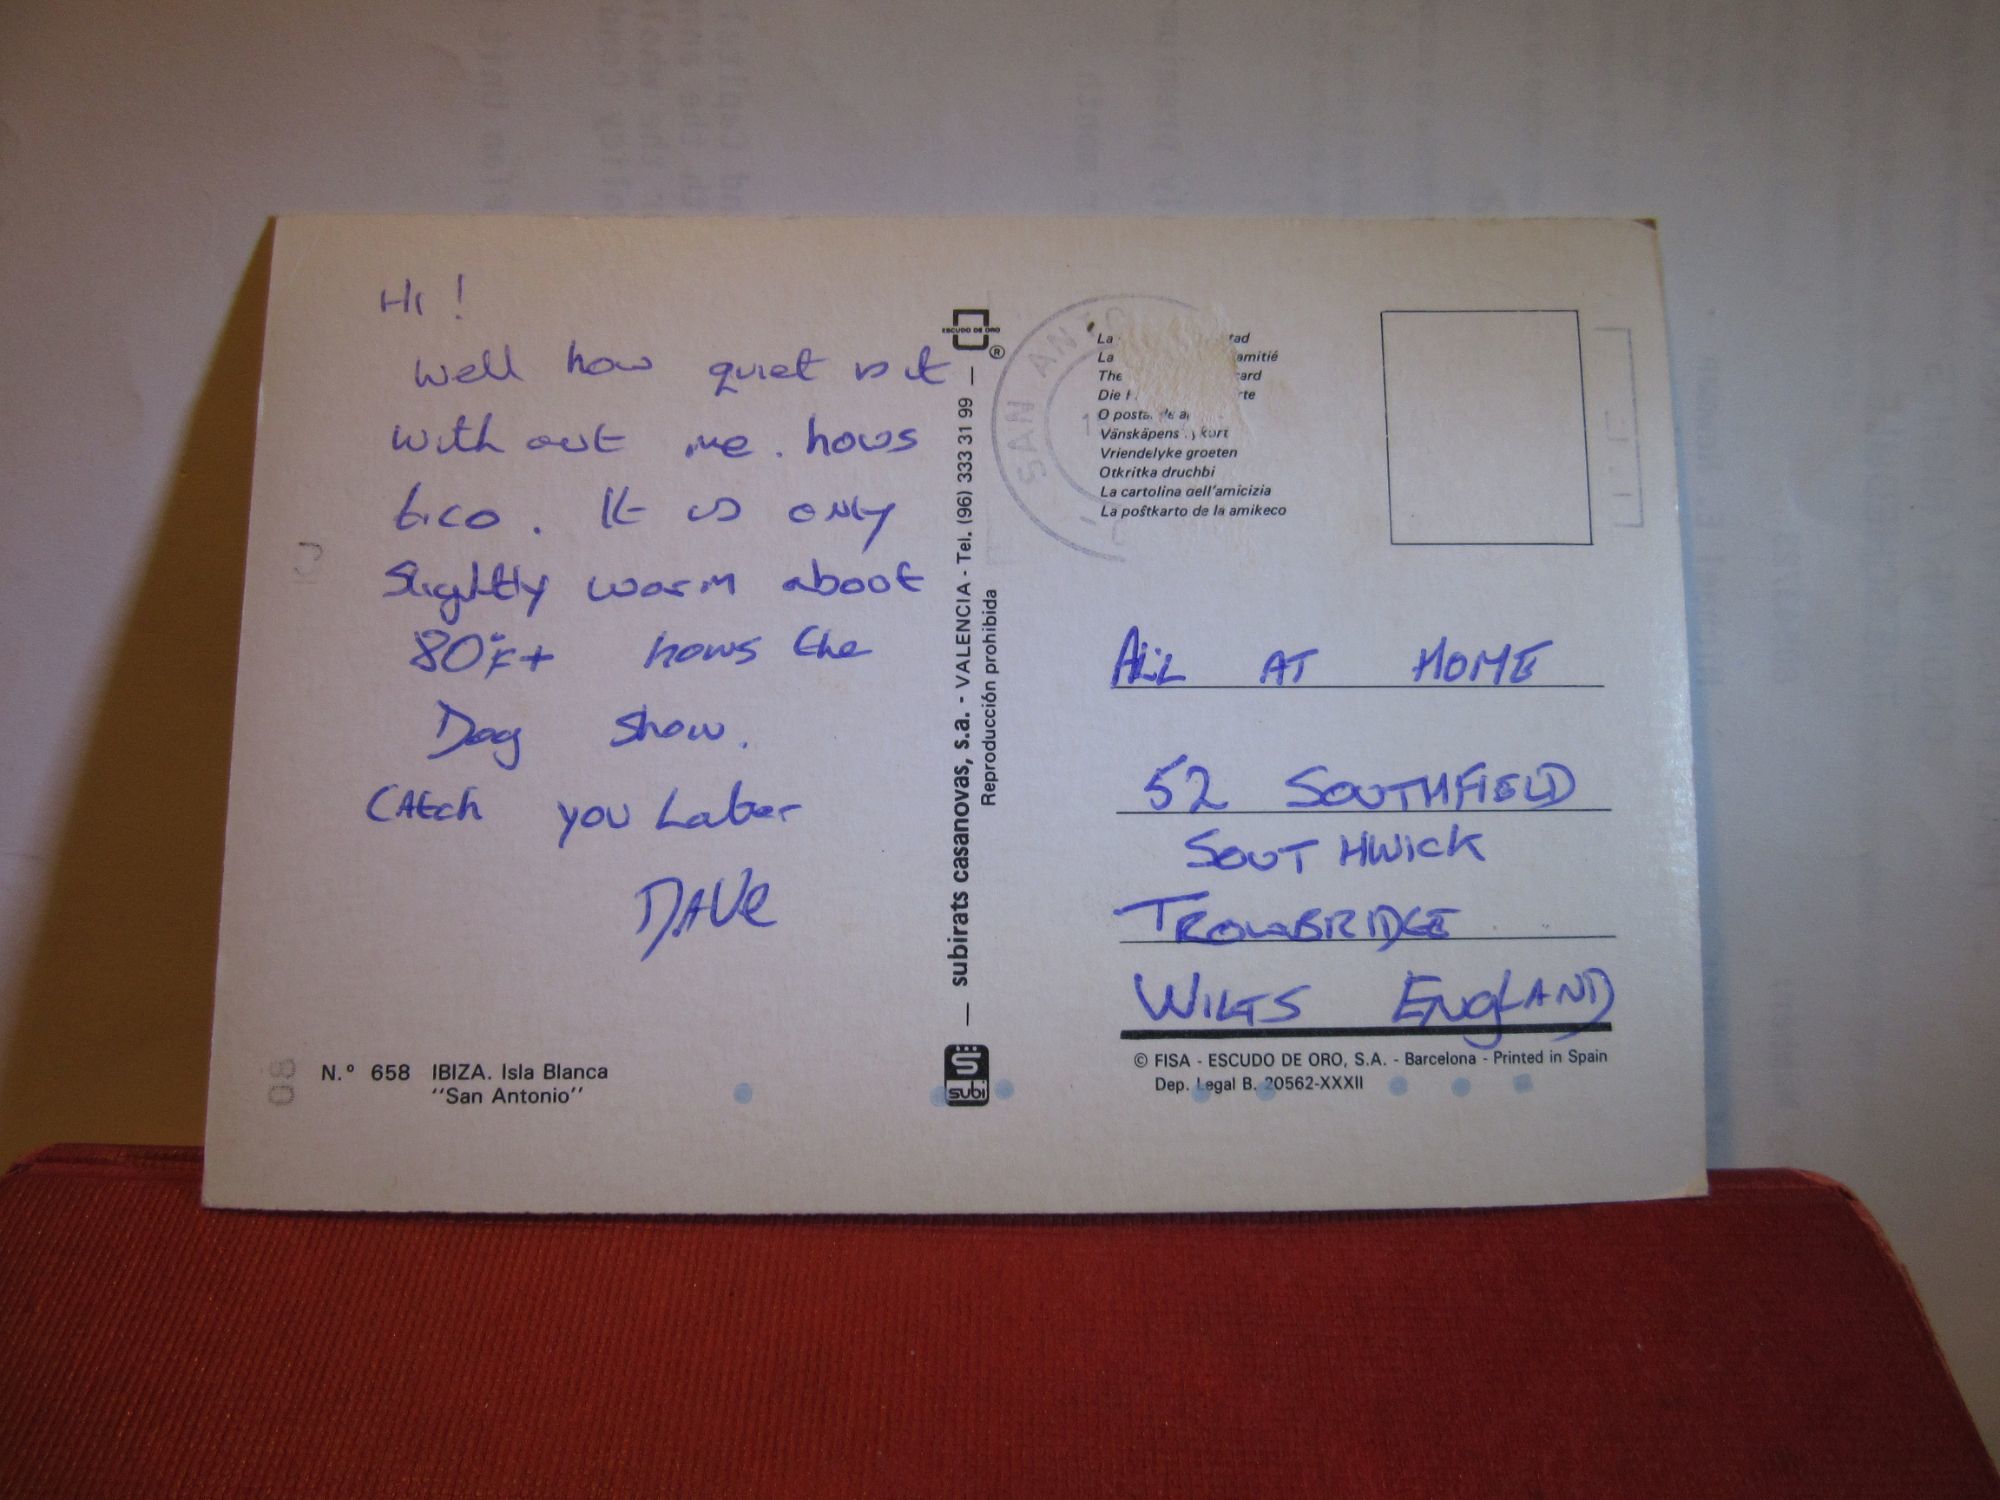 Hi !
Well how quiet is it
with out me . hows
tico . It is only
Slightly warm about
80°F+ hows the
Dog Show .
CAtch you Later
DAVe
N.º 658 IBIZA. Isla Blanca
"San Antonio"
ESCUDO DE ORO
®
— subirats casanovas, s.a. - VALENCIA - Tel. (96) 333 31 99 —
Reproducción prohibida
subi
SAN ANTO
La tad
La amitié
The card
Die rte
O posta de a
Vänskäpens kort
Vriendelyke groeten
Otkritka druchbi
La cartolina dell'amicizia
La poŝtkarto de la amikeco
ALL AT HOME
52 SOUTHFIELD
SOUTHWICK
TROWBRIDGE
WILTS ENGLAND
© FISA - ESCUDO DE ORO, S.A. - Barcelona - Printed in Spain
Dep. Legal B. 20562-XXXII
08